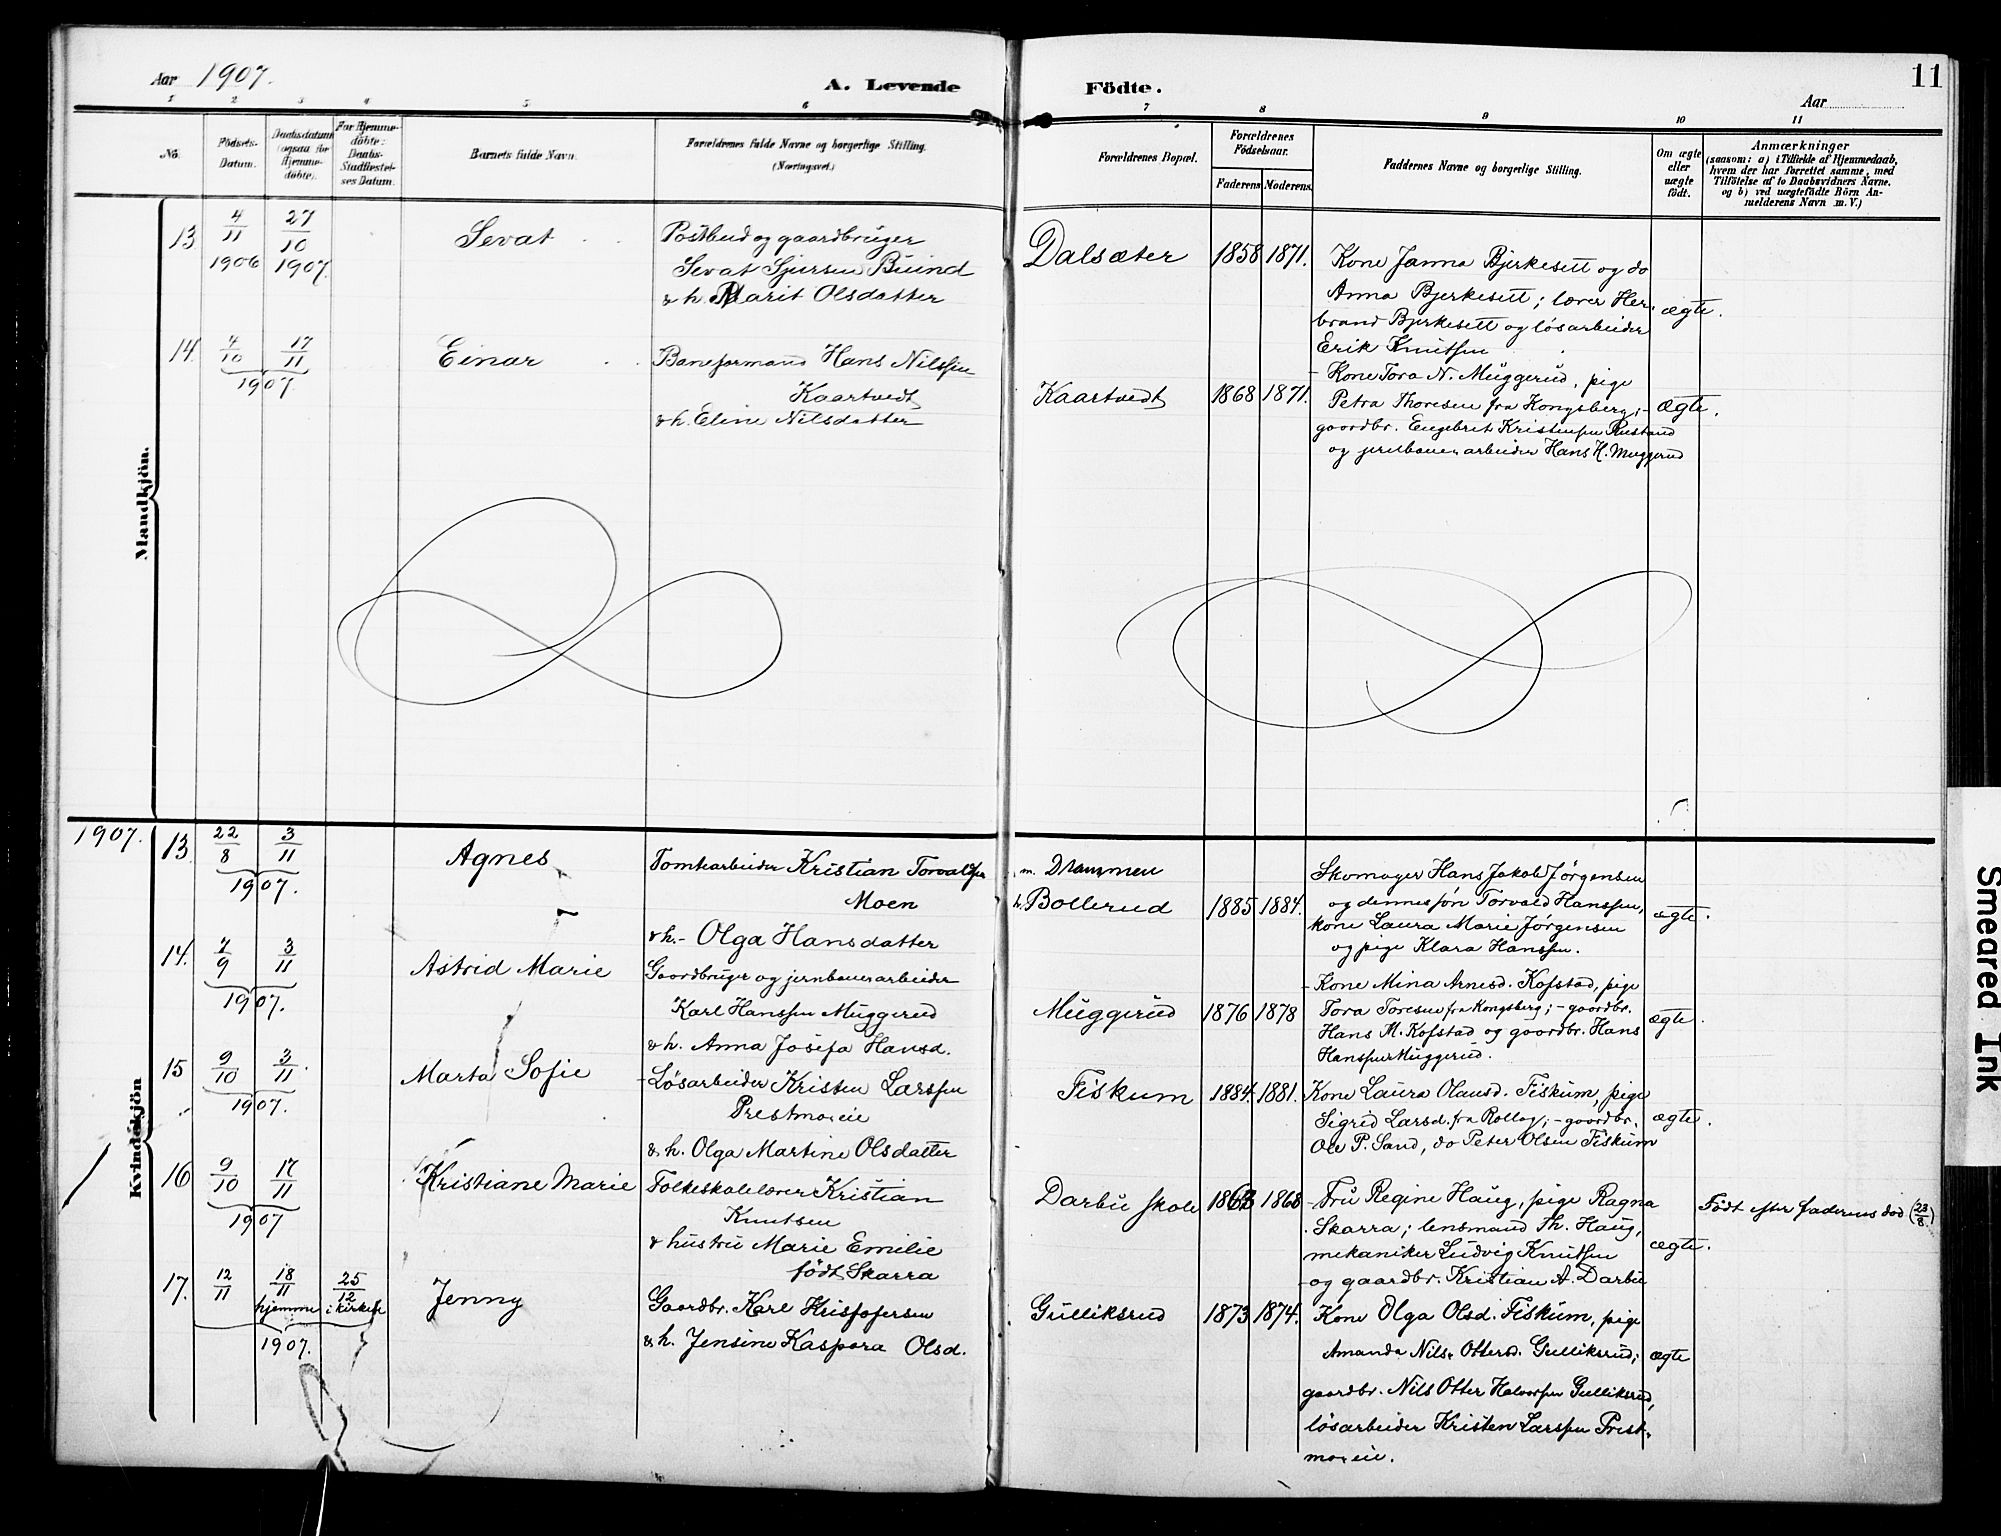 Aar 1907.
A. Levende Födte.
11
Aar
1 2 3 4 5 6 7 8 9 10 11
No.
Födsels-Datum.
Daabsdatum (ogsaa for Hjemme-döbte).
For Hjemme-döbte: Daabs-Stadfæstel-ses Datum.
Barnets fulde Navn.
Forældrenes fulde Navne og borgerlige Stilling. (Næringsvei.)
Forældrenes Bopæl.
Forældrenes Födselsaar.
Faderens. Moderens.
Faddernes Navne og borgerlige Stilling.
Om ægte eller uægte födt.
Anmærkninger
(saasom: a) i Tilfælde af Hjemmedaab,
hvem der har forrettet samme, med
Tilföielse af to Daabsvidners Navne.
og b) ved uægtefödte Börn An-
melderens Navn m. V.)
Mandkjön.
13 4/11 1906 27/10 1907.
Sevat
Postbud og gaardbruger
Sevat Sjursen Buind
& h. Marit Olsdatter
Dalsæter 1858 1871.
Kone Janna Bjerkesett og do
Anna Bjerkesett; lærer Her-
brand Bjerkesett og løsarbeider
Erik Knutsen
ægte.
14. 4/10 17/11 1907.
Einar
Baneformand Hans Nilssen
Kaartvedt
& h. Eline Nilsdatter
Kaartvedt 1868 1871.
Kone Tora N. Muggerud, pige
Petra Thoresen fra Kongsberg;-
gaardbr. Engebret Kristensen Rustand
og jernbanearbeider Hans H. Muggerud
ægte.
1907.
Kvindekjön
13 22/8 3/11 1907.
Agnes
Tomtearbeider Kristian Torvaldsen
Moen
& h.- Olga Hansdatter
m. Drammen
h. Bollerud 1885 1884.
Skomager Hans Jakob Jørgensen
og dennes søn Torvald Hanssen,
kone Laura Marie Jørgensen
og pige Klara Hanssen.
ægte.
14. 7/9 3/11 1907.
Astrid Marie
Gaardbruger og jernbanearbeider
Karl Hanssen Muggerud
& h. Anna Josefa Hansd.
Muggerud 1876 1878
Kone Mina Arnesd. Kofstad, pige
Tora Toresen fra Kongsberg;- gaardbr.
Hans M. Kofstad og gaardbr. Hans
Hanssen Muggerud.
ægte.
15 9/10 3/11. 1907.
Marta Sofie
Løsarbeider Kristen Larssen
Prestmoeie
& h. Olga Martine Olsdatter
Fiskum 1884. 1881.
Kone Laura Olausd. Fiskum, pige
Sigrid Larsd. fra Rollag;- gaardbr.
Ole P. Sand, do Peter Olsen Fiskum
ægte.
16 9/10 17/11 1907
Kristiane Marie
Folkeskolelærer Kristian
Knutsen
& hustru Marie Emilie
født Skarra
Darbu skole 1868
Fru Regine Haug, pige Ragna
Skarra; lensmand Th. Haug,
mekaniker Ludvig Knutsen
og gaardbr. Kristian A. Darbu
ægte.
Født efter faderens død (23/8)
17. 12/11 18/11 hjemme 25/12 i kirken 1907.
Jenny
Gaardbr. Karl Kristofersen
& h. Jensine Kaspara Olsd.
Gulliksrud 1873 1874.
Kone Olga Olsd. Fiskum, pige
Amanda Nils. Ottersd. Gulliksrud;
gaardbr. Nils Otter Halvorsen Gulliksrud,
løsarbeider Kristen Larssen Prest-
moeie.
ægte
Smeared Ink